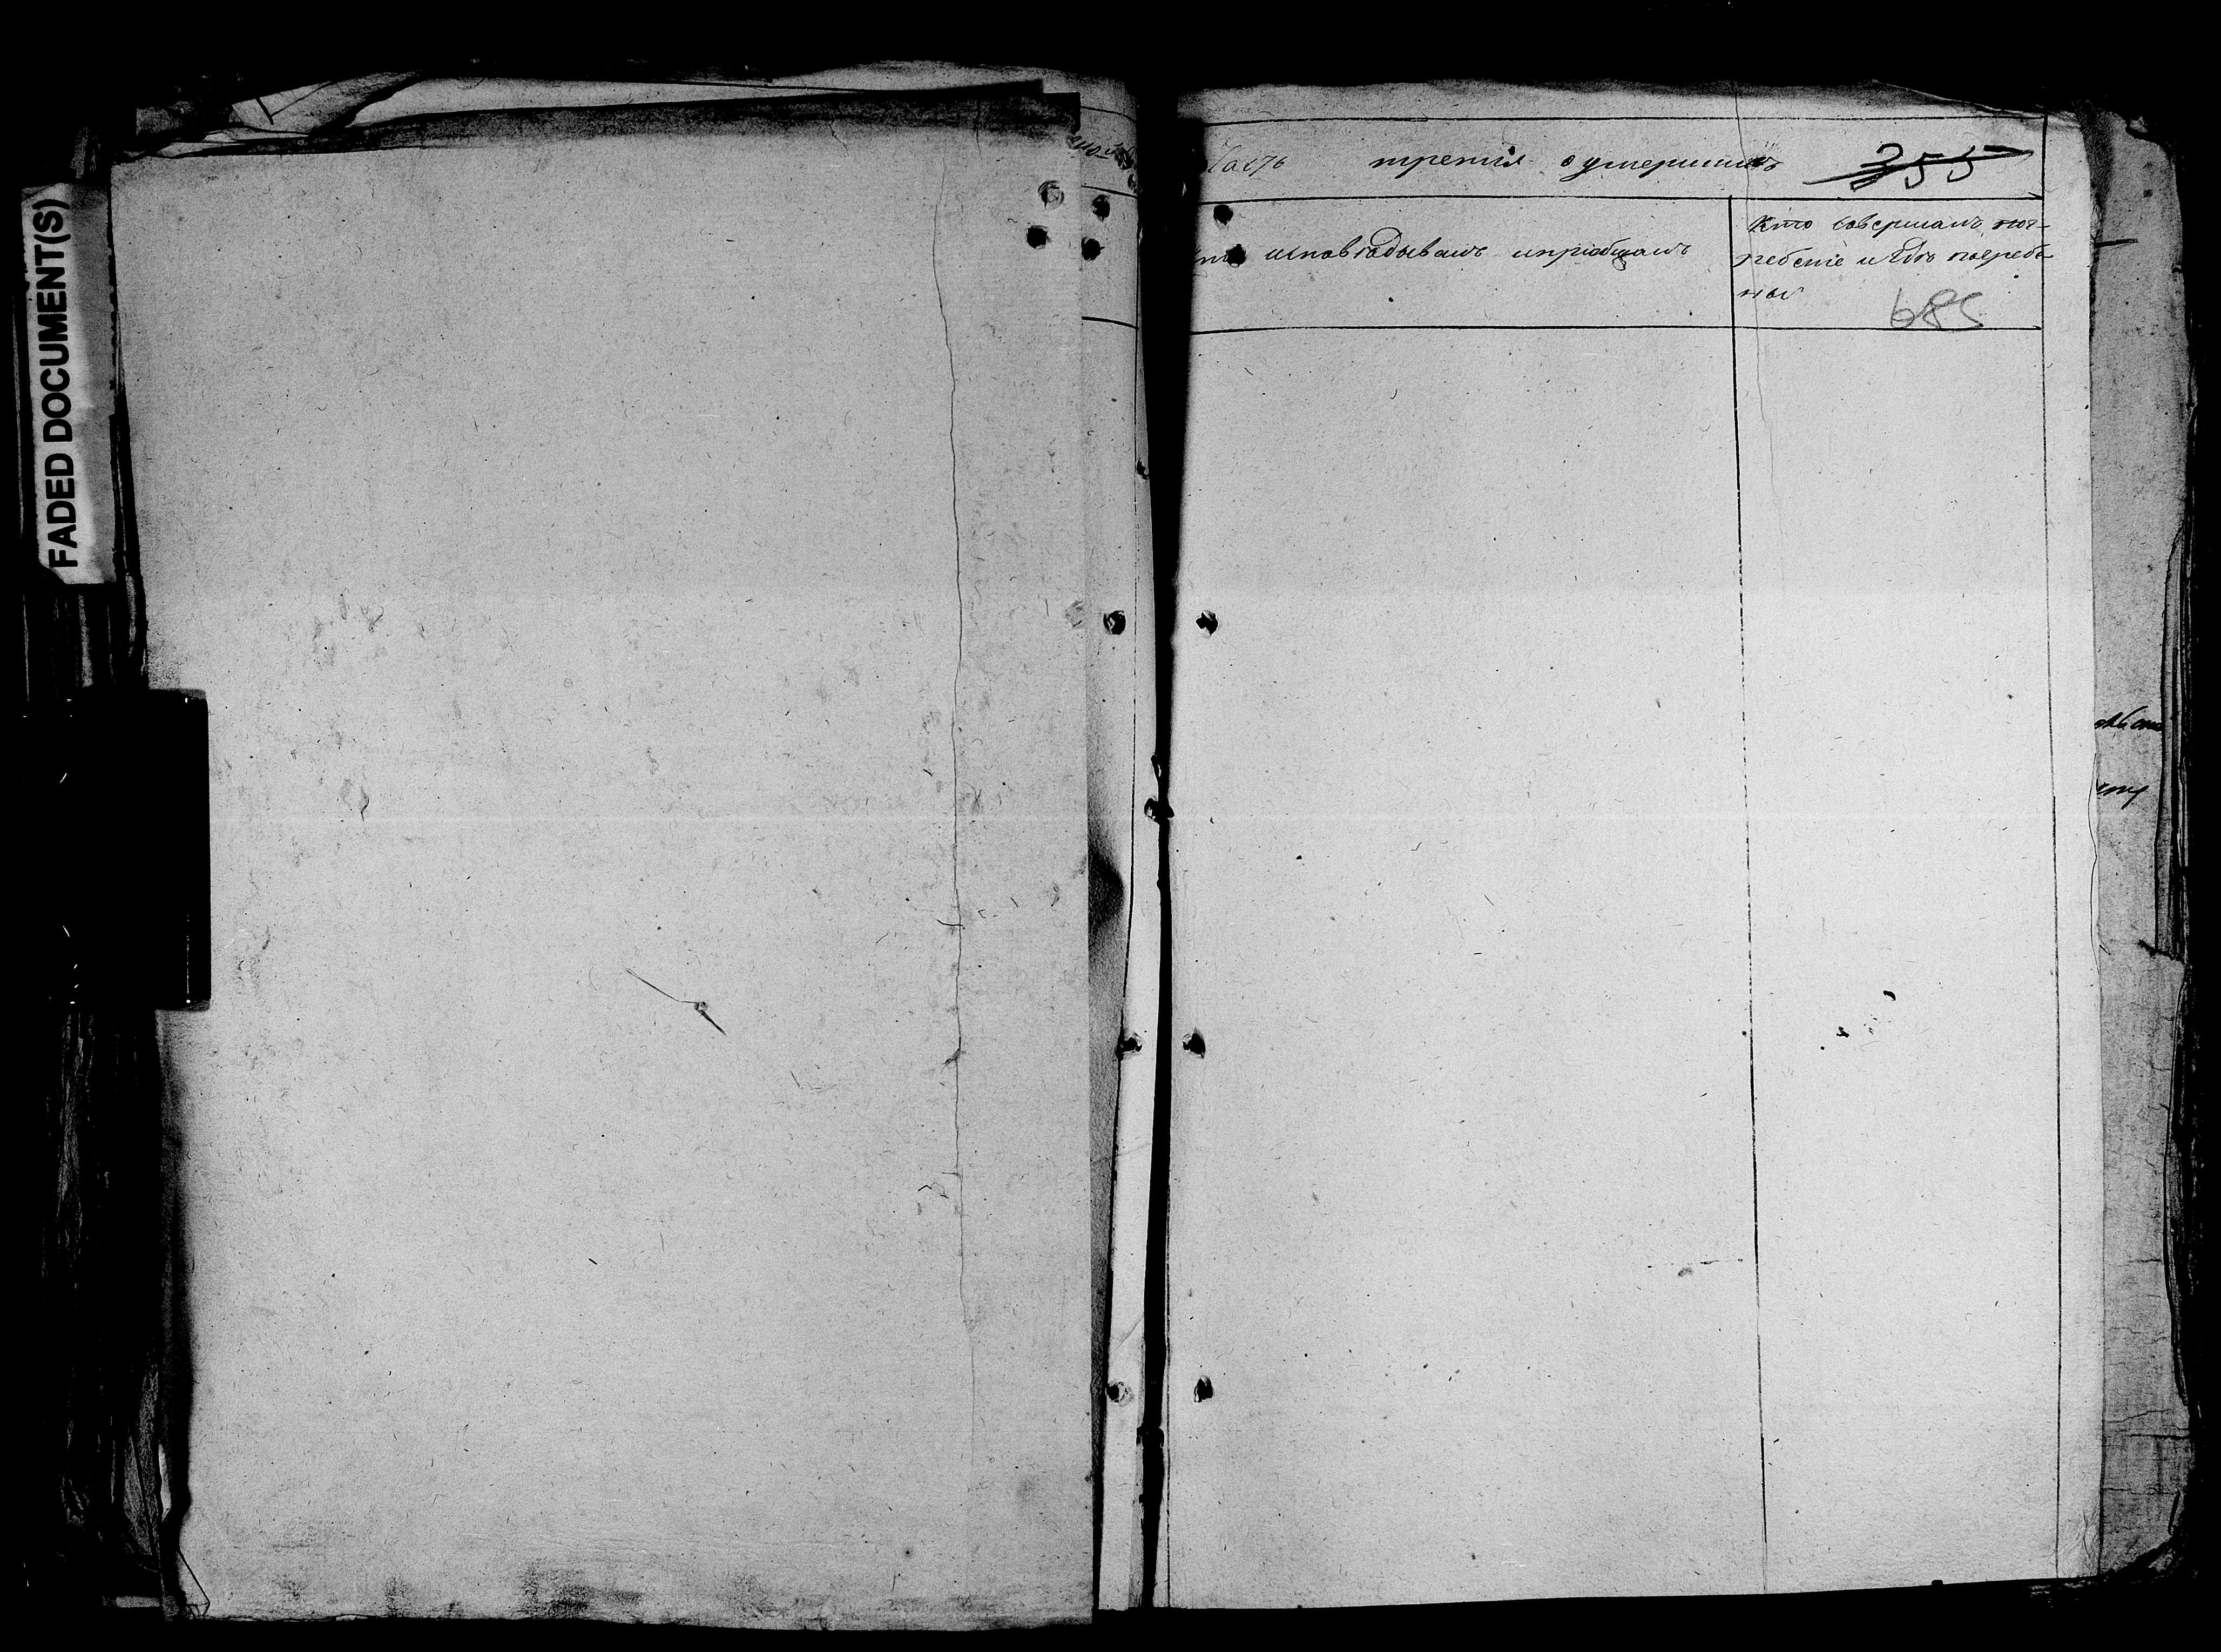 FADED DOCUMENT(S)
Часть третія о умершихъ 355
исповѣдывалъ и пріобщалъ
Кто совершалъ пог-
ребеніе и гдѣ погребе-
ны
685